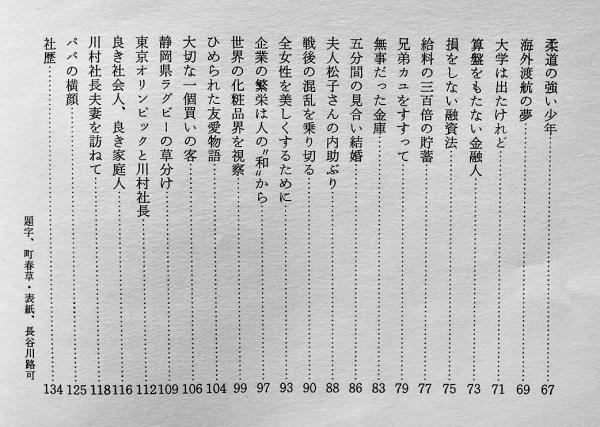 柔道の強い少年……67
海外渡航の夢……69
大学は出たけれど……71
算盤をもたない金融人……73
損をしない融資法……75
給料の三百倍の貯蓄……77
兄弟カユをすすって……79
無事だった金庫……83
五分間の見合い結婚……86
夫人松子さんの内助ぶり……88
戦後の混乱を乗り切る……90
全女性を美しくするために……93
企業の繁栄は人の〝和〟から……97
世界の化粧品界を視察……99
ひめられた友愛物語……104
大切な一個買いの客……106
静岡県ラグビーの草分け……109
東京オリンピックと川村社長……112
良き社会人、良き家庭人……116
川村社長夫妻を訪ねて……118
パパの横顔……125
社歴……134
題字、町春草・表紙、長谷川路可